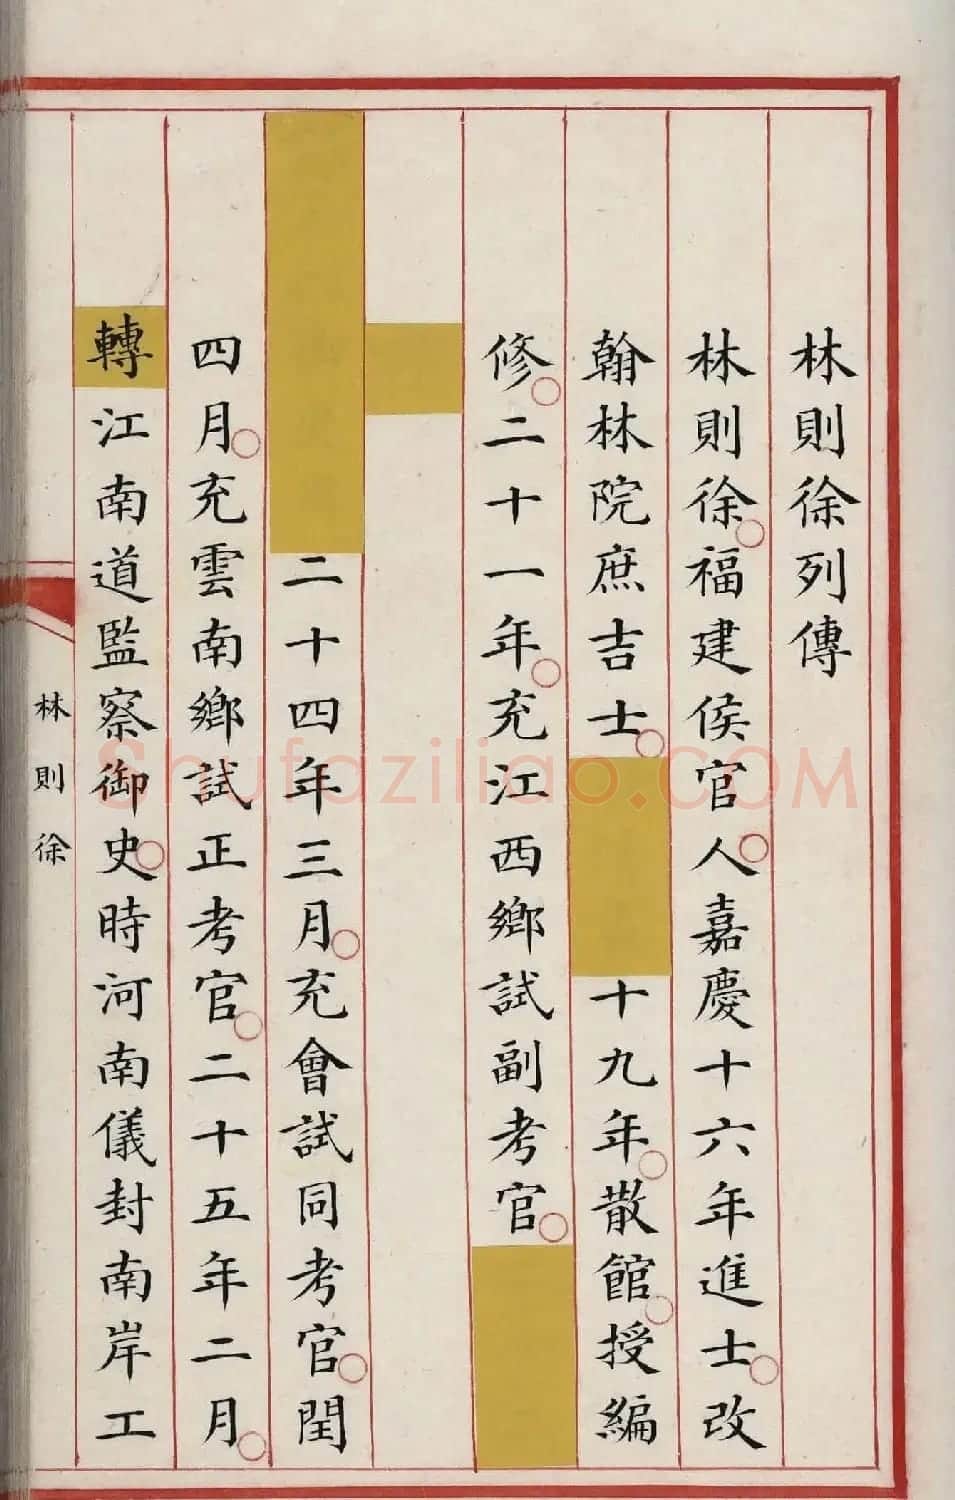 林則徐列傳
林則徐福建侯官人嘉慶十六年進士改
翰林院庶吉士十九年散館授編
修二十一年充江西鄉試副考官
二十四年三月充會試同考官閏
四月充雲南鄉試正考官二十五年二月
轉江南道監察御史時河南儀封南岸工
林則徐
Shufaziliao.COM